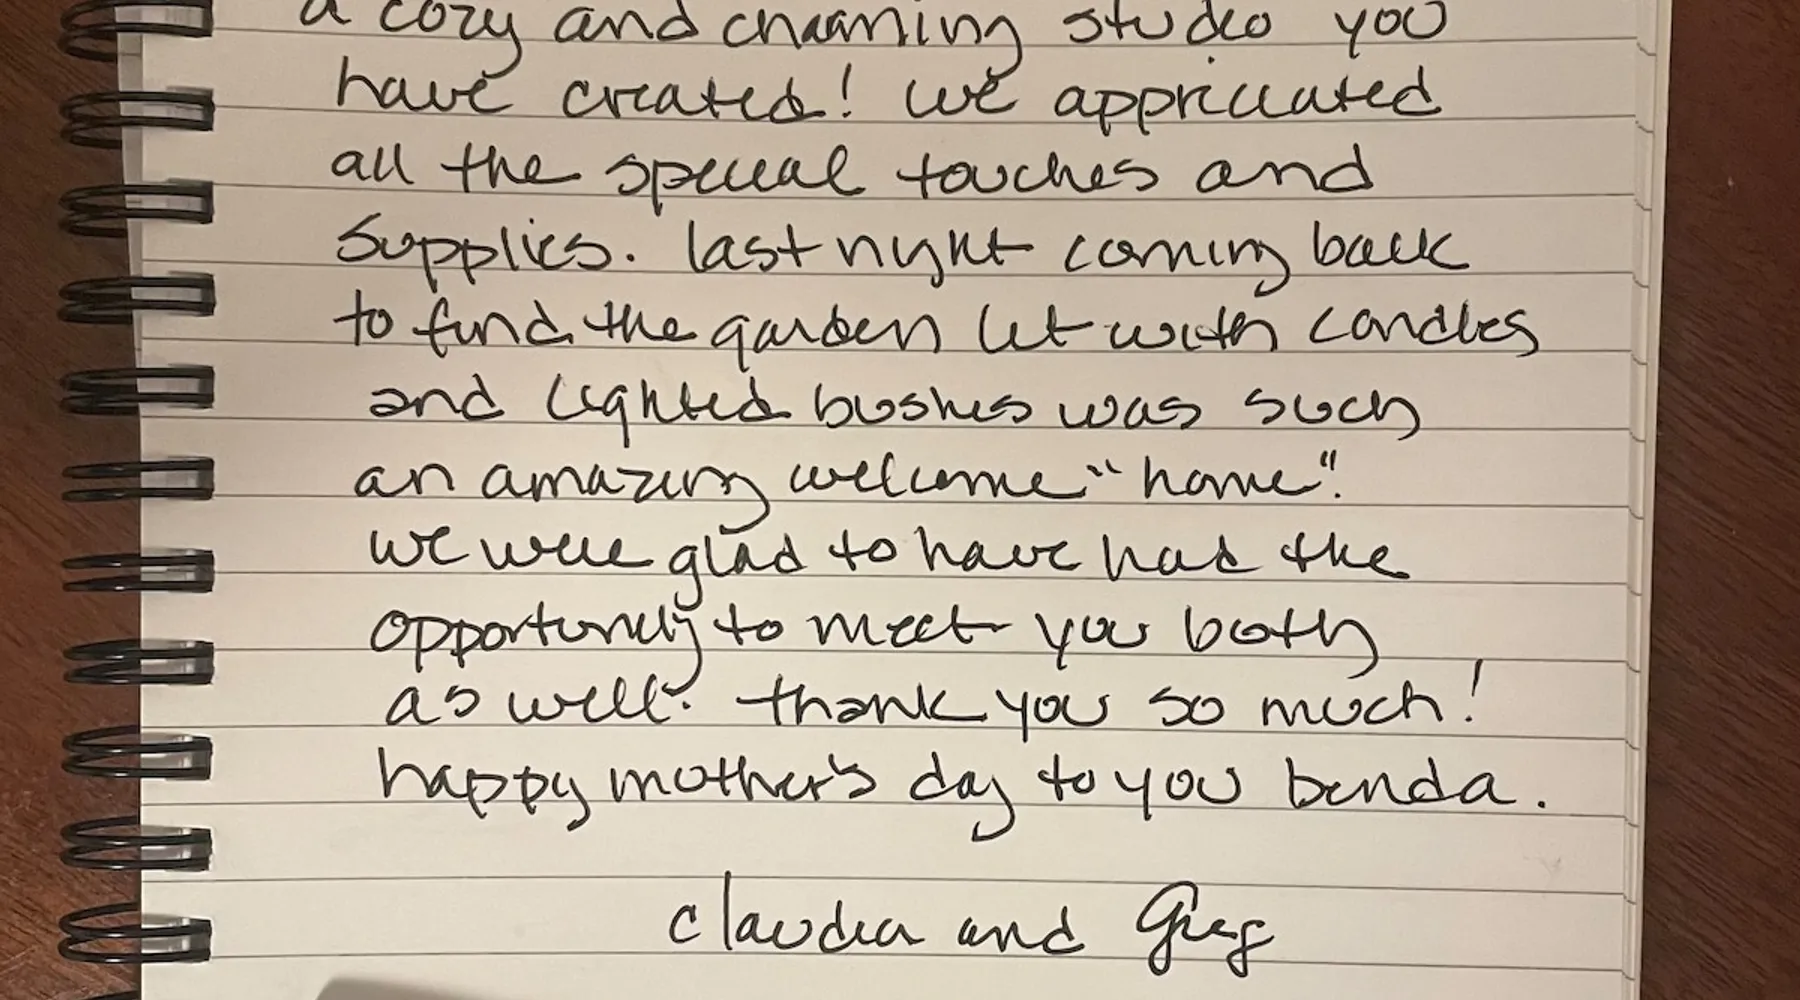 a cozy and charming studio you
have created! we appriciated
all the special touches and
supplies. last night coming back
to find the garden lit with candles
and lighted bushes was such
an amazing welcome "home".
we were glad to have had the
opportunity to meet you both
as well. thank you so much!
happy mother's day to you benda.
claudia and Greg